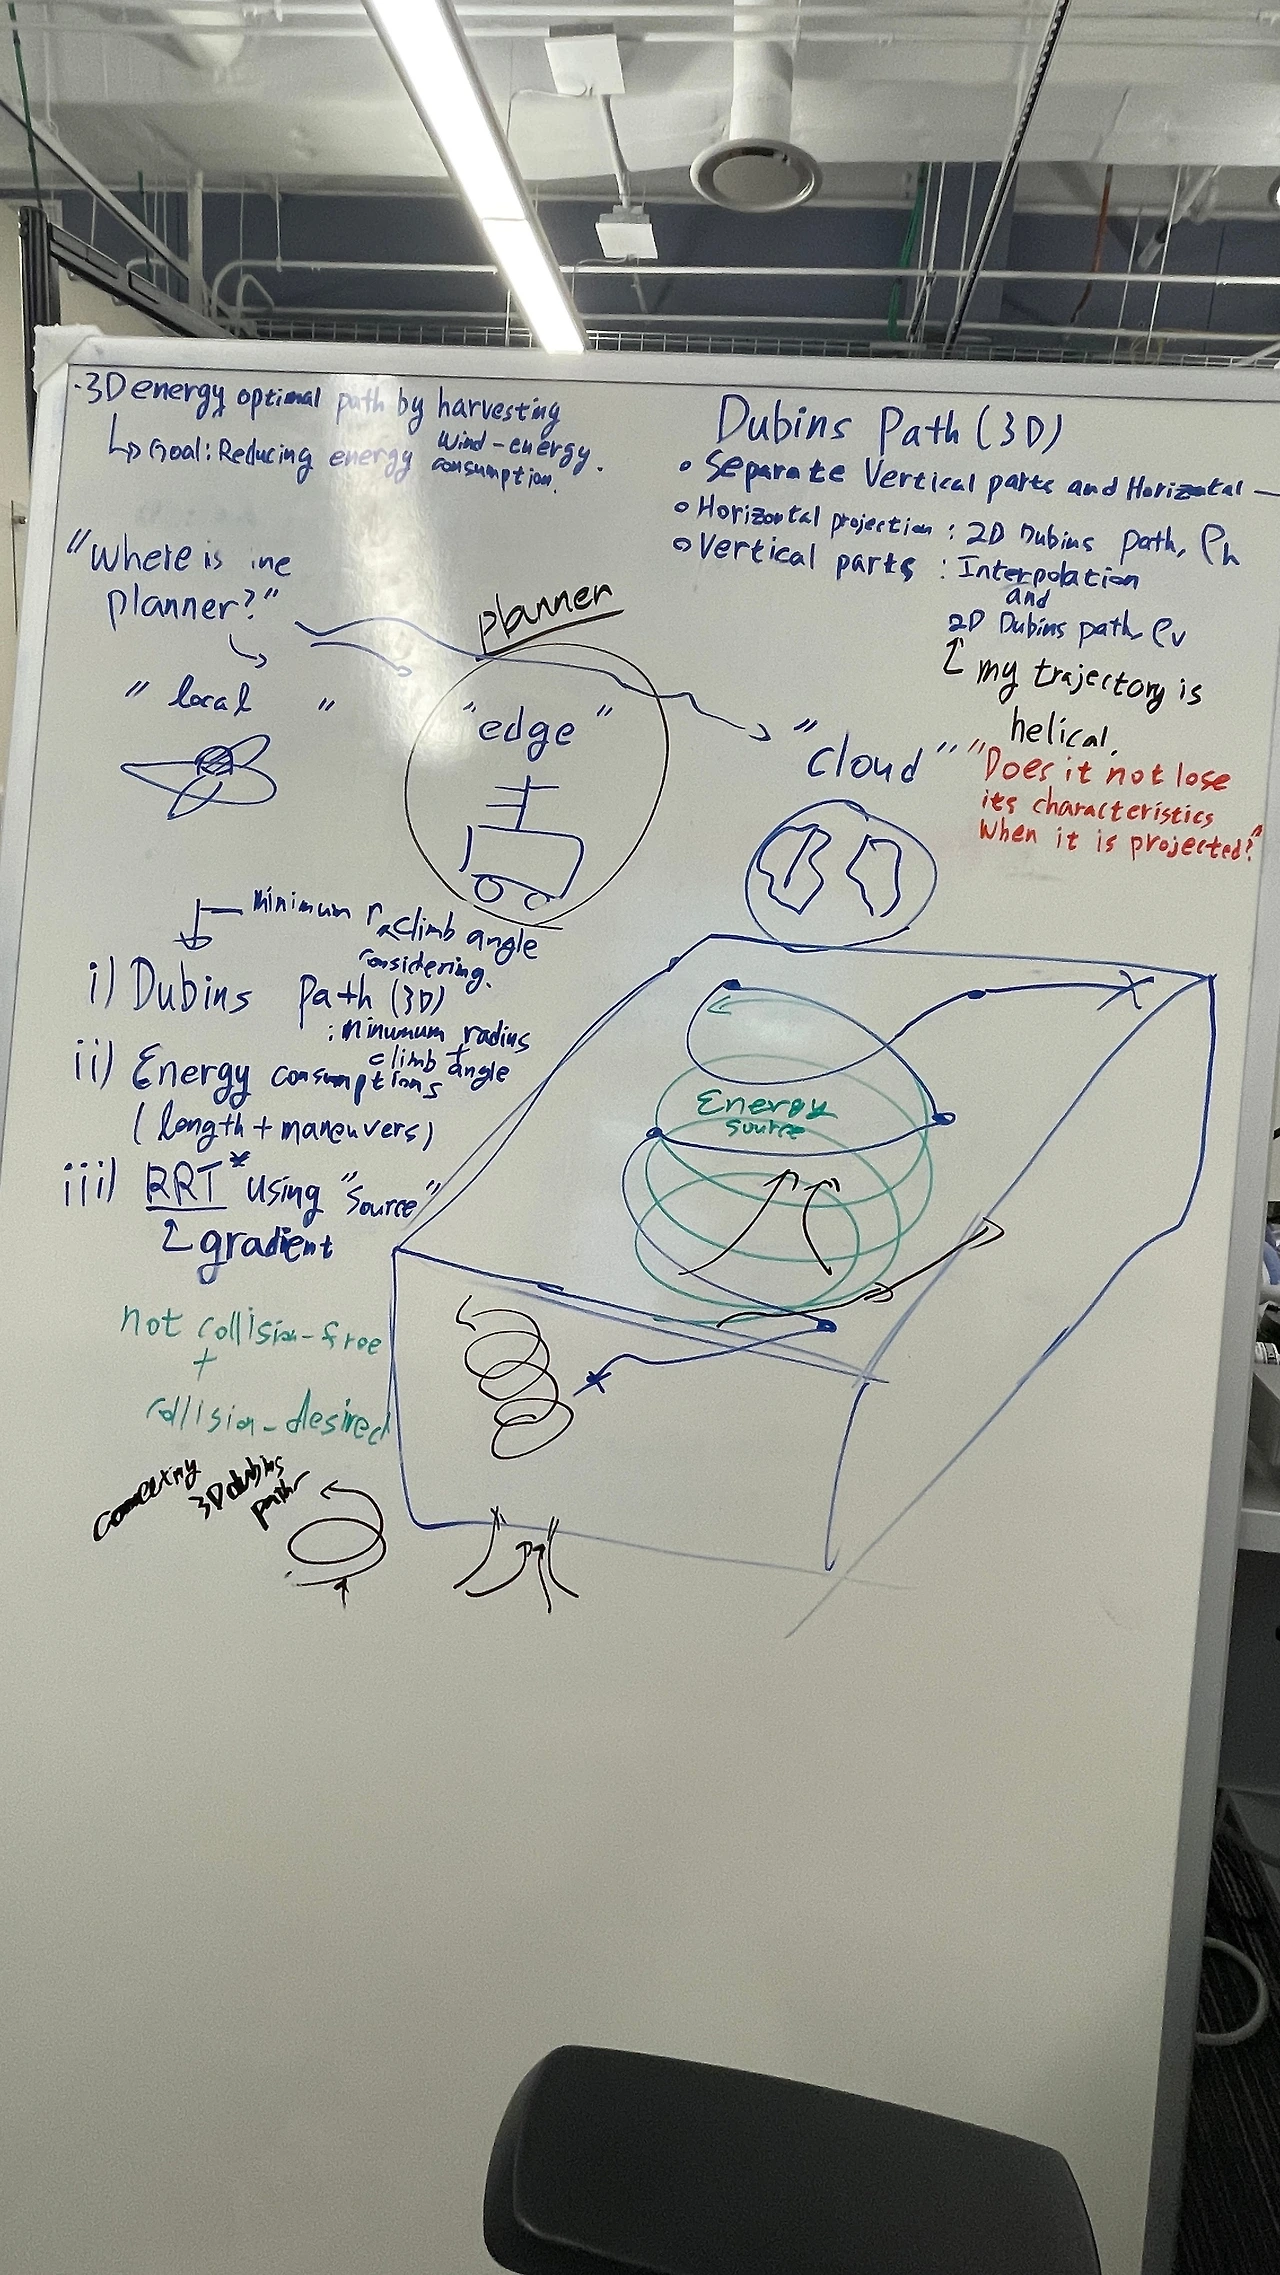 ·3D energy optimal path by harvesting
wind-energy.
↳ Goal: Reducing energy consumption.
"Where is ine
planner?"
planner
" local "
"edge"
"cloud"
minimum r & climb angle
considering.
i) Dubins path (3D)
: minumum radius
+
climb angle
ii) Energy consumptions
(length + maneuvers)
iii) RRT* using "source"
gradient
not collision-free
+
collision-desired
connecting
3D dubins
path
Dubins Path (3D)
• Separate Vertical parts and Horizontal —
• Horizontal projection : 2D Dubins path, ρh
• Vertical parts : Interpolation
and
2D Dubins path, ρv
my trajectory is
helical.
"Does it not lose
its characteristics
when it is projected?"
Energy
source